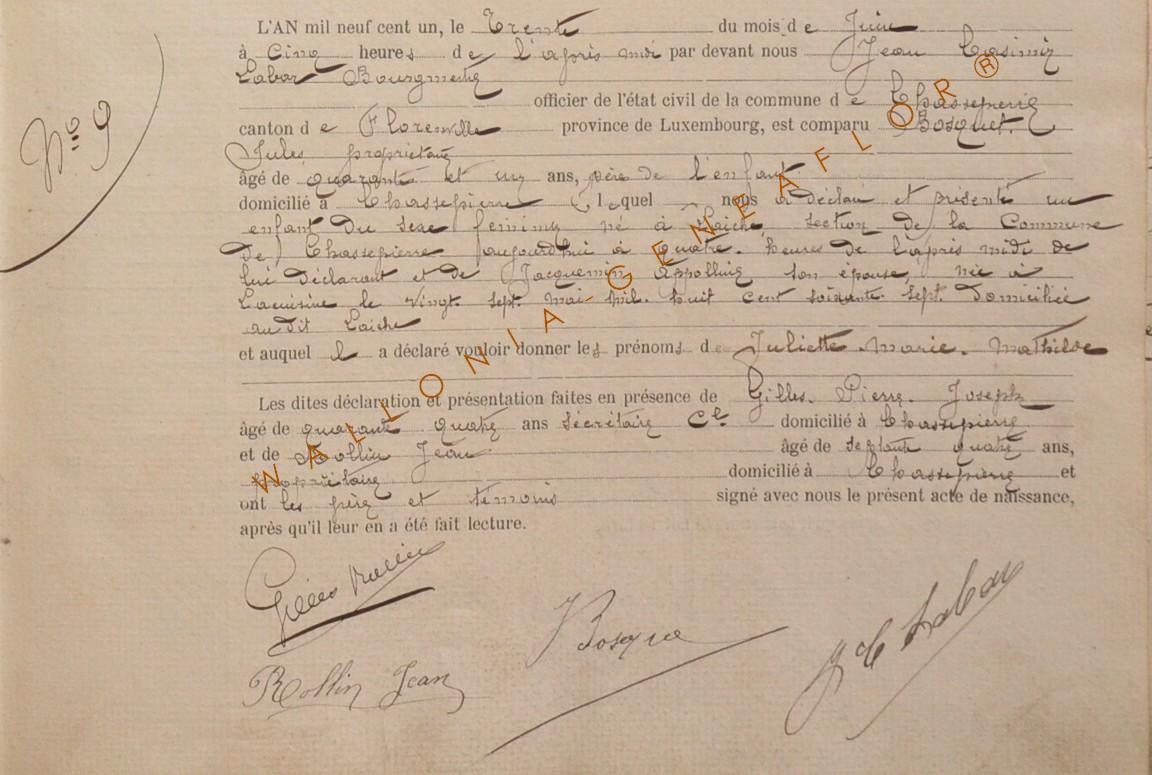 L'AN mil neuf cent un, le Trente du mois de Juin
à Cinq heures de l'après midi par devant nous Jean Casimir
Labar Bourgmestre
officier de l'état civil de la commune de Chassepierre
canton de Florenville province de Luxembourg, est comparu Bosquet.
Jules, propriétaire
âgé de quarante et un ans, père de l'enfant
domicilié à Chassepierre lequel nous a déclaré et présenté un
enfant du sexe feminin né à Laiche, section de la Commune
de Chassepierre aujourdhui à quatre. heures de l'après midi de
lui déclarant et de Jacquemin Appolline son épouse, née à
Lacuisine le vingt. sept. mai. mil. huit cent soixante. sept. domiciliée
au dit Laiche
et auquel l a déclaré vouloir donner les prénoms de Juliette. Marie. Mathilde
Les dites déclaration et présentation faites en présence de Gilles. Pierre. Joseph
âgé de quarante quatre ans secrétaire Cl domicilié à Chassepierre
et de Rollin Jean âgé de septante quatre ans,
propriétaire domicilié à Chassepierre et
ont les père et témoins signé avec nous le présent acte de naissance,
après qu'il leur en a été fait lecture.
No 9
Gilles
Bosque
J C Labar
Rollin Jean
WALLONIA GENEAFLOR ®